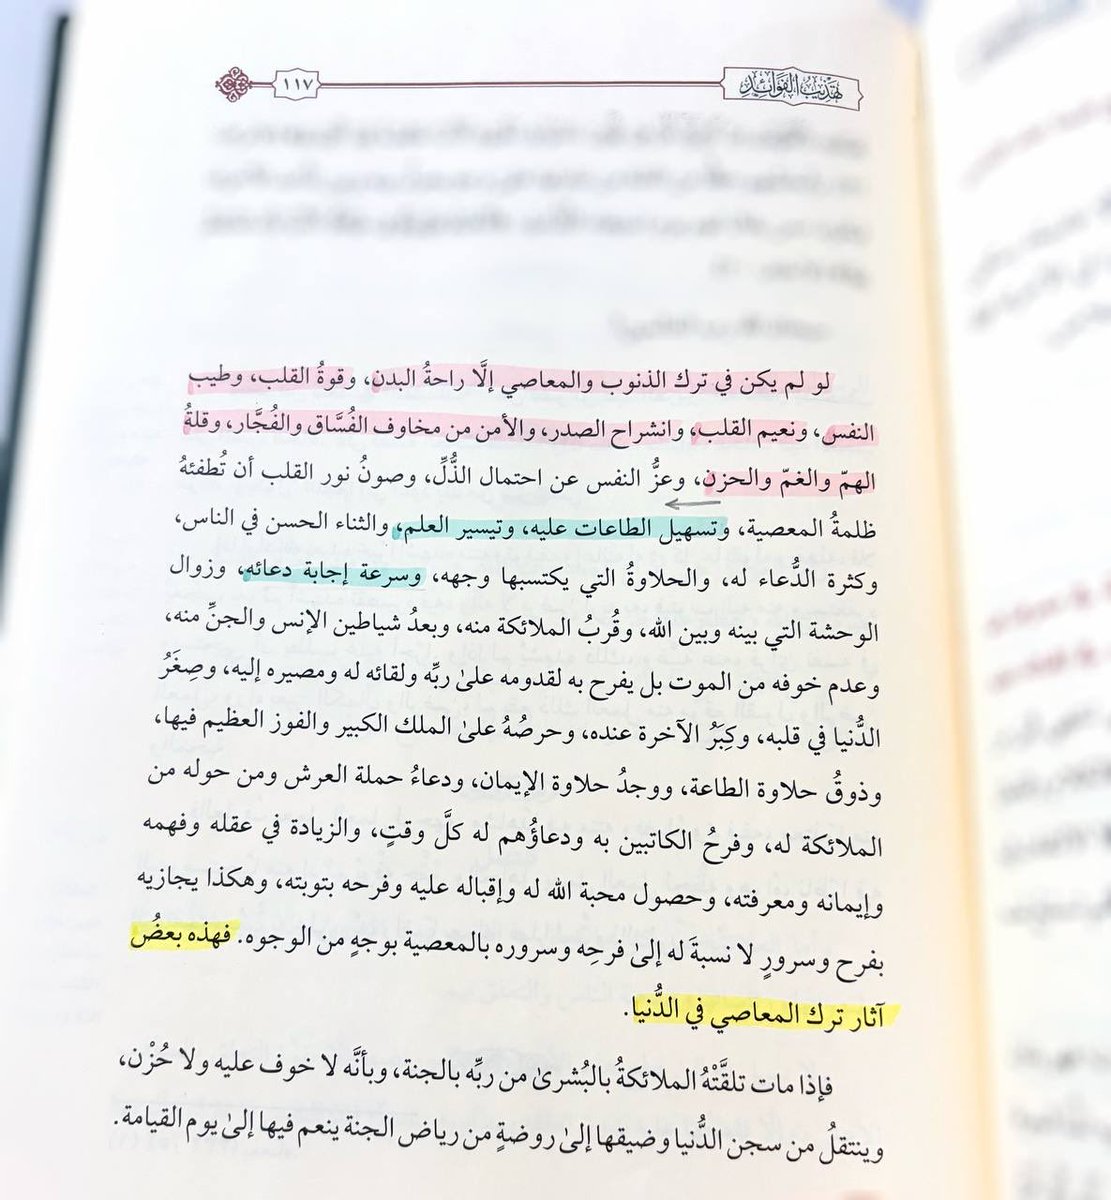 تهذيب الفوائد
١١٧
لو لم يكن في ترك الذنوب والمعاصي إلَّا راحةُ البدن، وقوةُ القلب، وطيب
النفس، ونعيم القلب، وانشراح الصدر، والأمن من مخاوف الفُسَّاق والفُجَّار، وقلةُ
الهمّ والغمّ والحزن، وعزُّ النفس عن احتمال الذُّلِّ، وصونُ نور القلب أن تُطفئهُ
ظلمةُ المعصية، وتسهيل الطاعات عليه، وتيسير العلم، والثناء الحسن في الناس،
وكثرة الدُّعاء له، والحلاوةُ التي يكتسبها وجهه، وسرعة إجابة دعائه، وزوال
الوحشة التي بينه وبين الله، وقُربُ الملائكة منه، وبعدُ شياطين الإنس والجنِّ منه،
وعدم خوفه من الموت بل يفرح به لقدومه علىٰ ربِّه ولقائه له ومصيره إليه، وصِغَرُ
الدُّنيا في قلبه، وكِبَرُ الآخرة عنده، وحرصُهُ علىٰ الملك الكبير والفوز العظيم فيها،
وذوقُ حلاوة الطاعة، ووجدُ حلاوة الإيمان، ودعاءُ حملة العرش ومن حوله من
الملائكة له، وفرحُ الكاتبين به ودعاؤُهم له كلَّ وقتٍ، والزيادة في عقله وفهمه
وإيمانه ومعرفته، وحصول محبة الله له وإقباله عليه وفرحه بتوبته، وهكذا يجازيه
بفرح وسرورٍ لا نسبةَ له إلىٰ فرحِه وسروره بالمعصية بوجهٍ من الوجوه. فهذه بعضُ
آثار ترك المعاصي في الدُّنيا.
فإذا مات تلقَّتْهُ الملائكةُ بالبُشرىٰ من ربِّه بالجنة، وبأنَّه لا خوف عليه ولا حُزْن،
وينتقلُ من سجن الدُّنيا وضيقها إلىٰ روضةٍ من رياض الجنة ينعم فيها إلىٰ يوم القيامة.